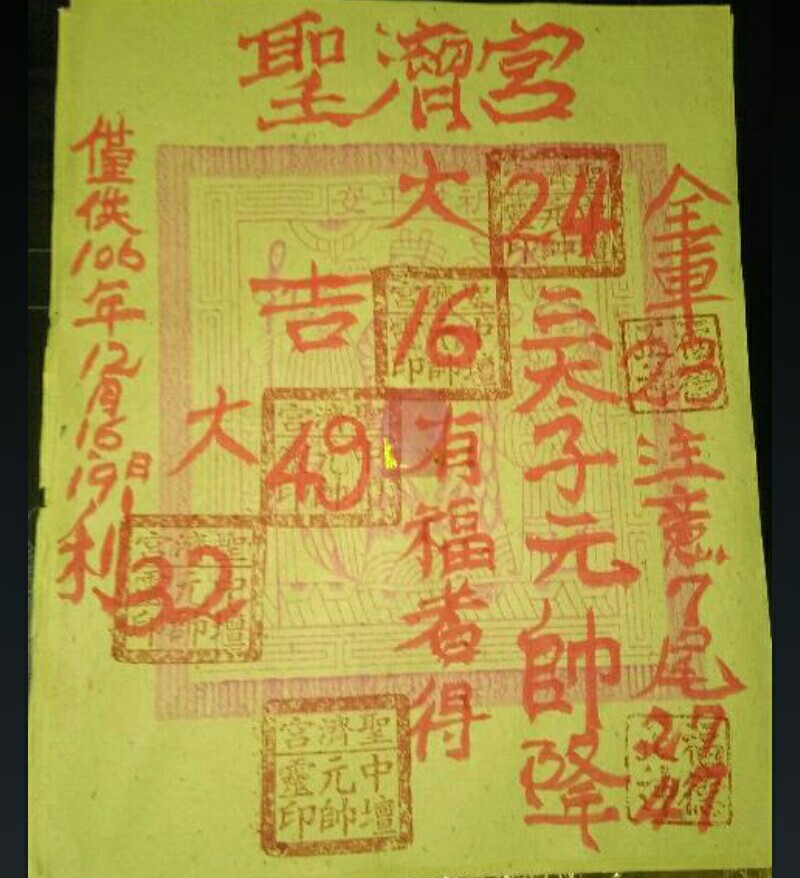 聖濟宮
全車 23 注意7尾 27 47
24 三太子元帥降
16 有福者得
49
32
大吉
大利
僅供106年12月16.19日
聖濟宮
中壇元帥靈印